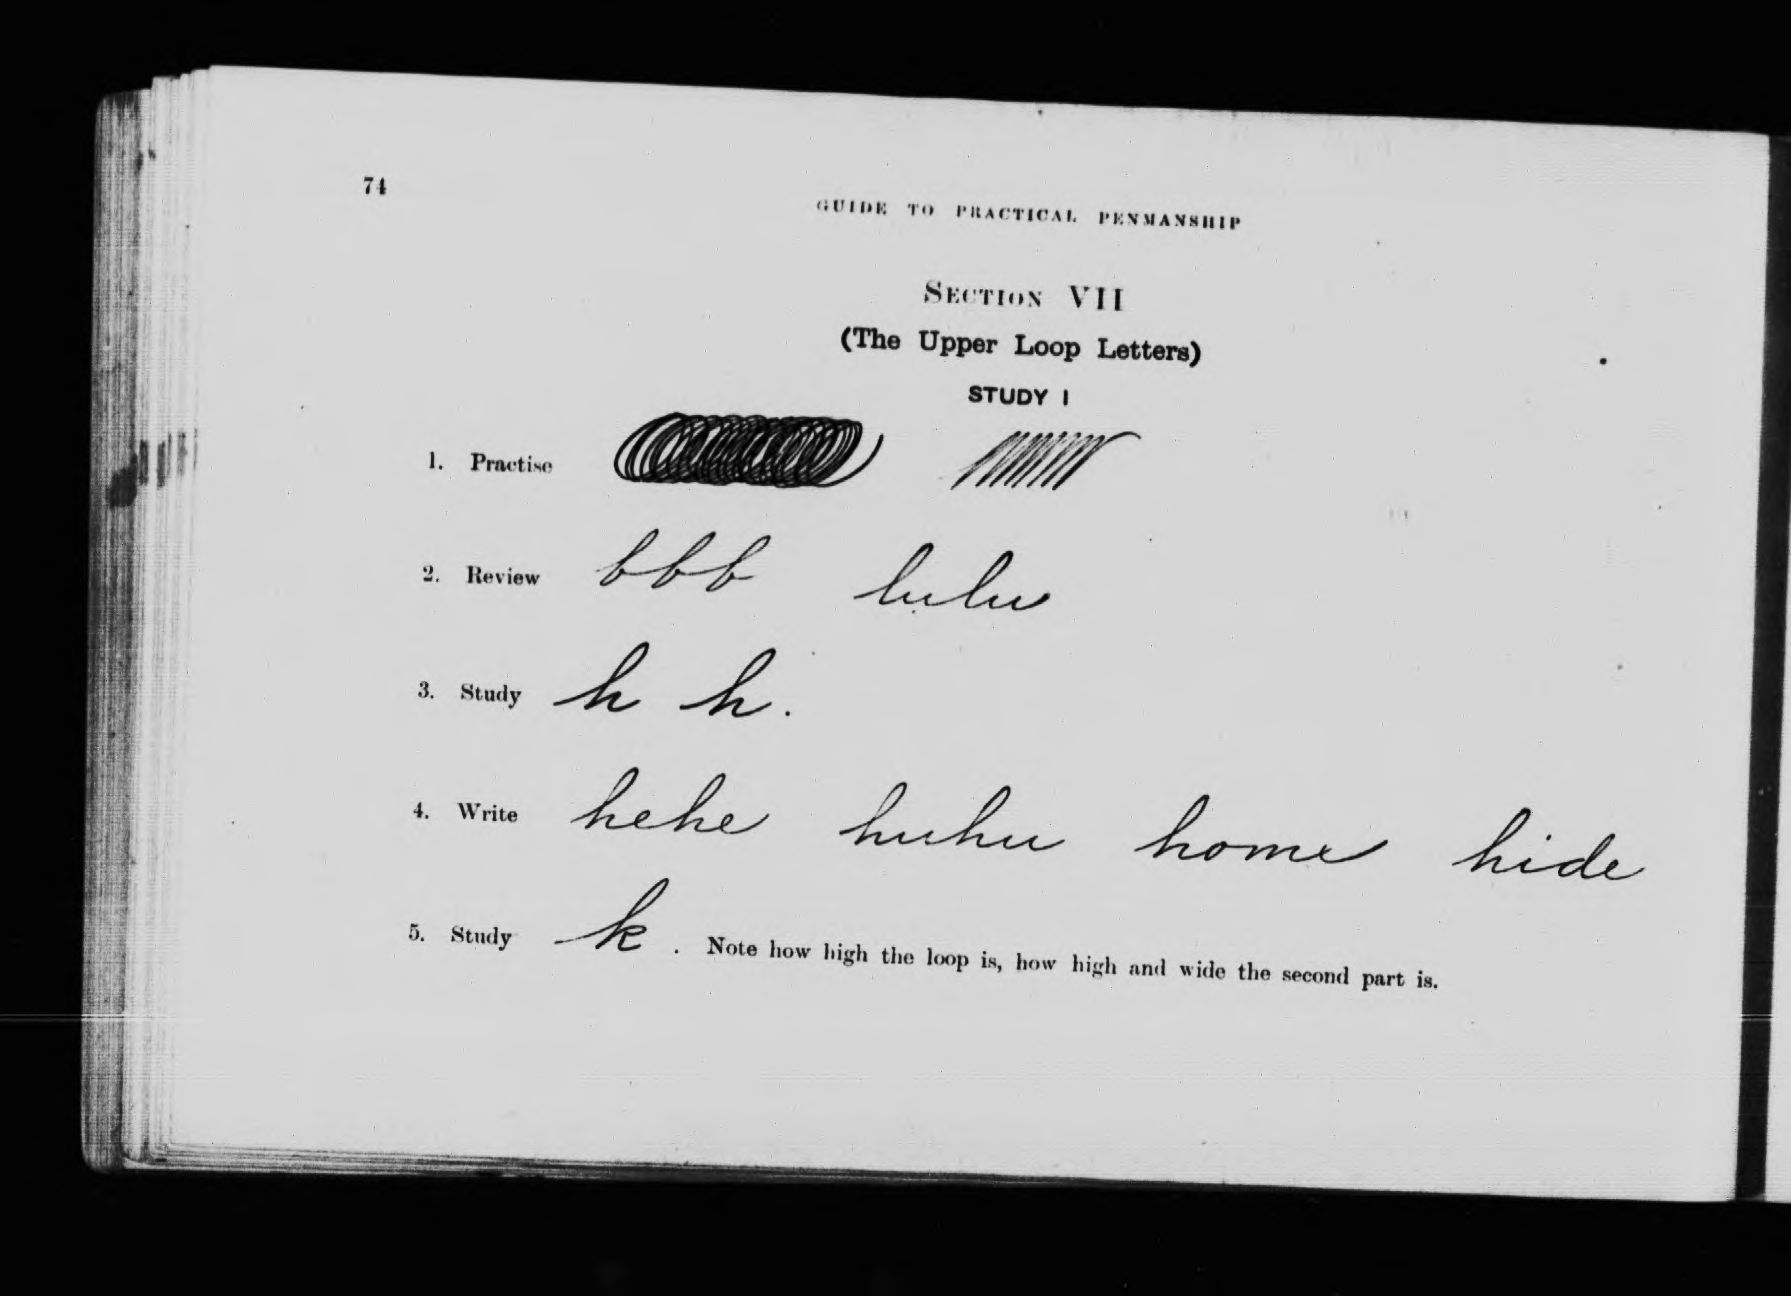 74
GUIDE TO PRACTICAL PENMANSHIP
SECTION VII
(The Upper Loop Letters)
STUDY I
1. Practise
2. Review b b b lulu
3. Study h h.
4. Write hehe huhu home hide
5. Study k. Note how high the loop is, how high and wide the second part is.